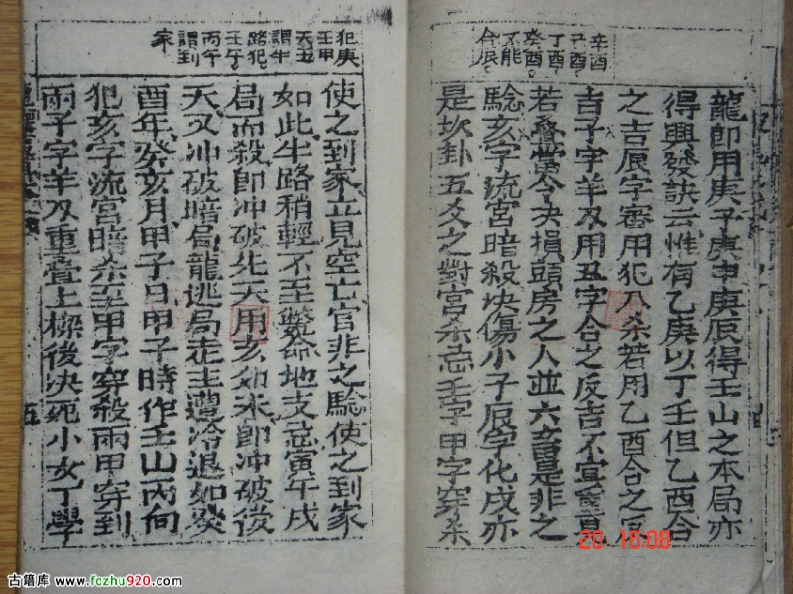 辛酉
子酉
丁酉
癸酉
不能
合辰
龍即用庚子庚申庚辰得壬山之本局亦
得興發訣云惟有乙庚以丁壬但乙酉合
之吉辰字審用犯八杀若用乙酉合之官
吉子字羊刃用丑字合之反吉不宜
若叠當令决損頭房之人並六畜是非之
騐亥字流宮暗殺块傷小子辰字化戌亦
是坎卦五爻之對宮杀忌壬字甲字穿杀
犯庚
壬甲
天丑
謂牛
路犯
壬午
丙午
謂到
家
使之到家立見空亡官非之騐使之到家
如此牛路稍輕不至斃命地支忌寅午戌
局而殺即冲破先天用亥如未即冲破後
天又冲破暗局龍逃局走主遭冷退如癸
酉年癸亥月甲子日甲子時作壬山丙向
犯亥字流宮暗杀至甲字穿殺兩甲穿到
兩子字羊刃重叠上樑後决死小女丁學
五
古籍库 www.fczhu920.com
20 16:08